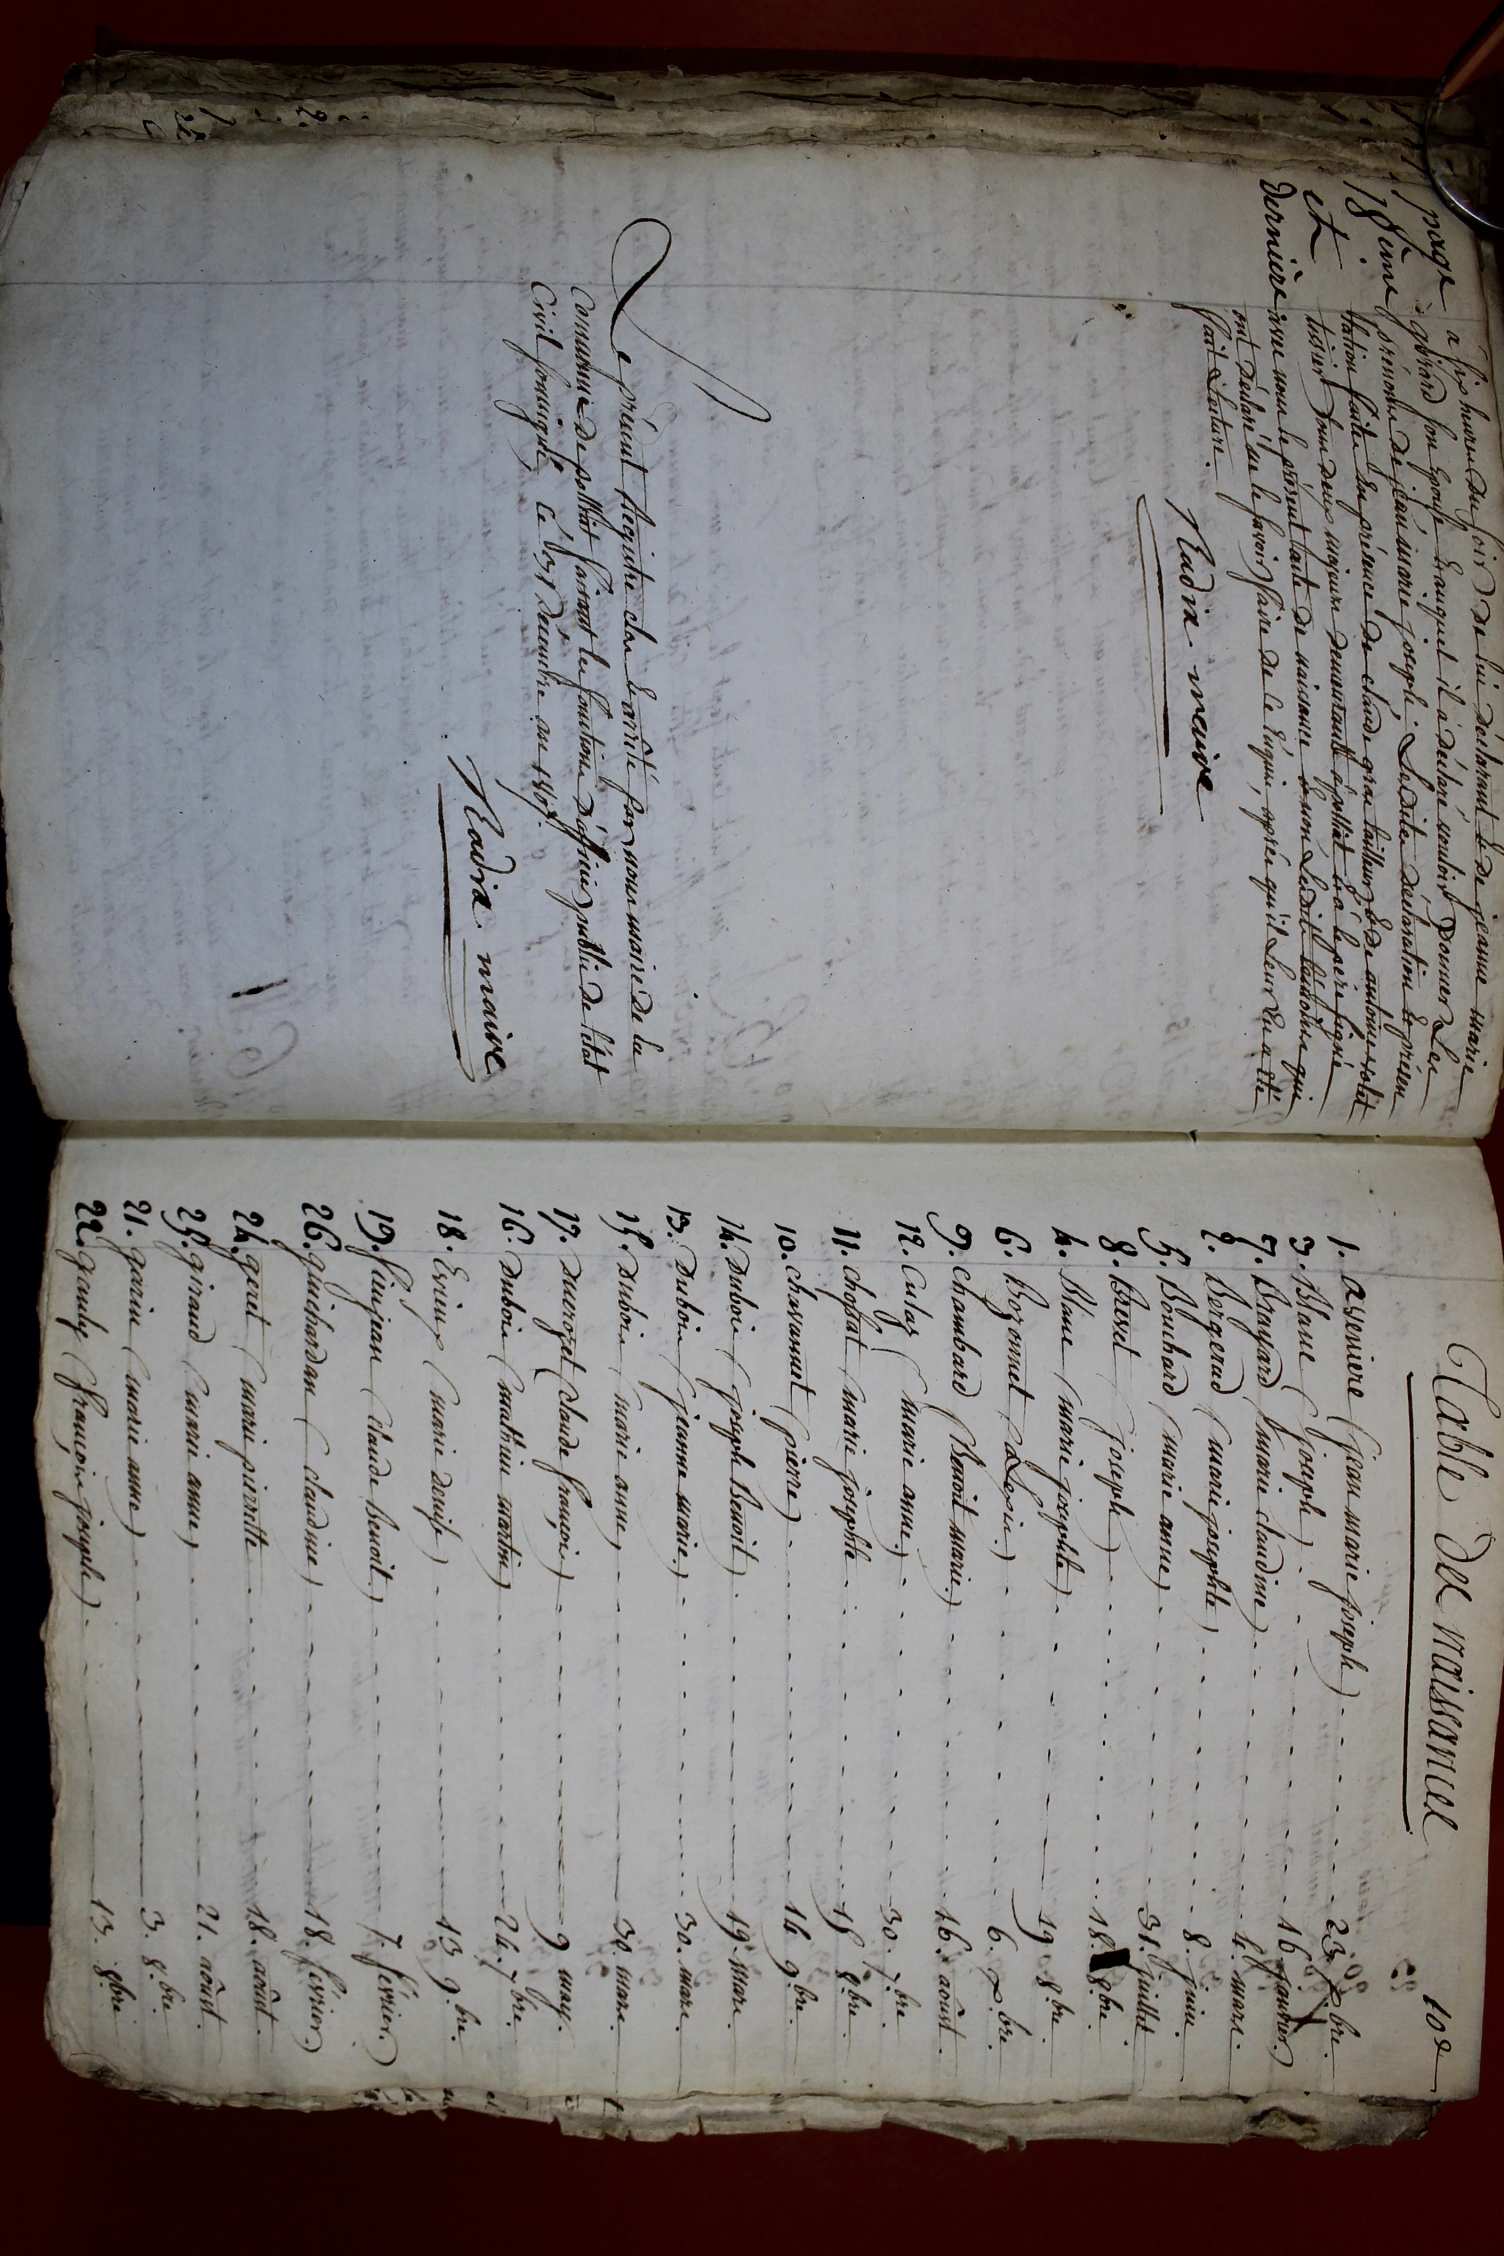 page
18eme
et
Dernière
à six heures du soir de lui déclarant & de jeanne marie
girard son Epouse auquel il a déclaré vouloir Donner Les
prénoms de jean marie joseph. Lesdite déclaration & présen
tation faite En présence de claude gras tailleur & de antoine
tissier tous deux majeurs demeurants à polliat & a le père signé
avec nous le présent acte de naissance & non Lesdits témoins qui
ont déclaré ne le savoir faire de ce Enquis, après qu'il Leur En a été
fait Lecture.
Nadra maire
Le présent Registre clos & arrêté par nous maire de la
Commune de polliat faisant les fonctions d'officier public de l'état
Civil soussigné, Ce 31 Decembre an 1807.
Nadra maire
102
Table des naissances
1. asseniere (jean marie joseph) 23. xbre.
3. Blanc (joseph) 16 janvier
7. Brayard (marie claudine) 4. mars.
2. Bergerud (marie josephte) 8. juin.
5. Bouchard (marie anne) 31. juillet
8. Brevet (joseph) 18. 8bre.
4. Blanc (marie josephte) 19. 8bre.
6. Bozonnet (Alexis) 6. xbre.
9. Chambard (Benoit marie) 16. août.
12. Culas (marie anne) 30. 7bre.
11. choffat (marie josephte 15 8bre.
10. chavannet (pierre) 14 9bre.
14. Dubois (joseph Benoit) 19. mars.
13. Dubois (jeanne marie) 30. mars.
15. Dubois (marie anne) 30. mars.
17. Ducrozet (claude françois) 9 may.
16. Dubois (mathieu martin) 24. 7bre.
18. Evrieux (marie denise) 13 9bre.
19. feujean (claude Benoit) 7. février.
26. guichardan (claudine) 18. février
24. geret (marie pierrette 18. août.
25. giraud (marie anne) 21. août.
21. garin (marie anne) 3. 8.bre
22. gauly (françois joseph) 13. 8bre